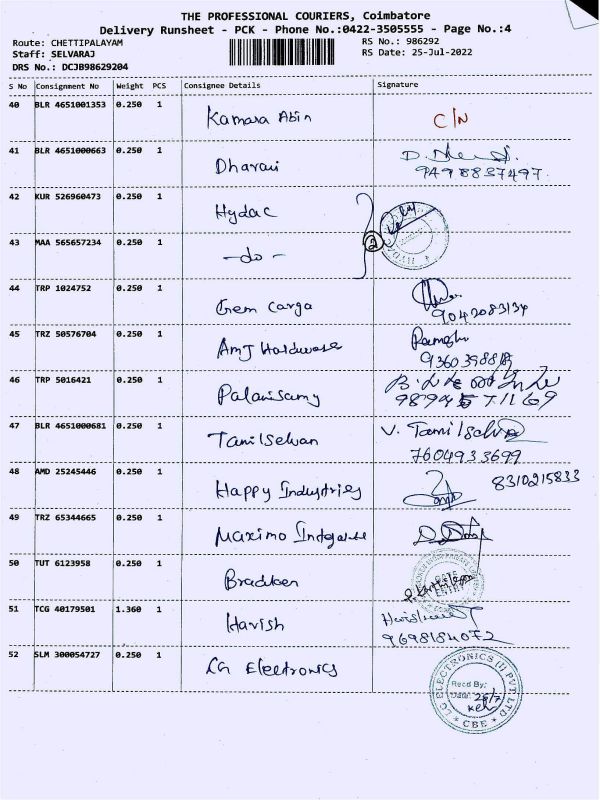 THE PROFESSIONAL COURIERS, Coimbatore
Delivery Runsheet - PCK - Phone No.:0422-3505555 - Page No.:4
Route: CHETTIPALAYAM RS No.: 986292
Staff: SELVARAJ RS Date: 25-Jul-2022
DRS No.: DCJB98629204
S No Consignment No Weight PCS Consignee Details Signature
40 BLR 4651001353 0.250 1 Kamara Abin C/N
41 BLR 4651000663 0.250 1 Dharani
9498837497.
42 KUR 526960473 0.250 1 Hydac
2
43 MAA 565657234 0.250 1 -do-
44 TRP 1024752 0.250 1 Gem Carga
9042083134
45 TRZ 50576704 0.250 1 AMJ Hardware
46 TRP 5016421 0.250 1 Palanisamy
47 BLR 4651000681 0.250 1 Tamilselvan V. Tamilselva
7604933699
48 AMD 25245446 0.250 1 Happy Industries 8310215833
49 TRZ 65344665 0.250 1 Maximo
50 TUT 6123958 0.250 1 Bradken
51 TCG 40179501 1.360 1 Harish
9698184072
52 SLM 300054727 0.250 1 LG Electronics
LG ELECTRONICS (I) PVT LTD
Recd By:
Date: 26/7
* CBE *